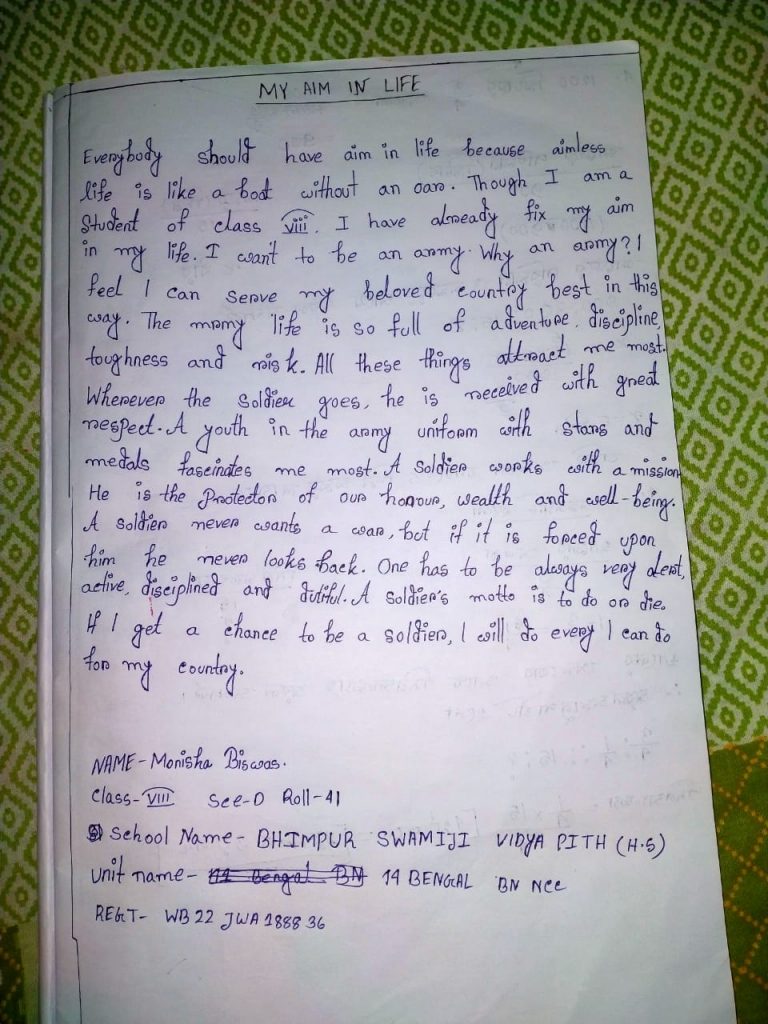 MY AIM IN LIFE
Everybody should have aim in life because aimless
life is like a boat without an oar. Though I am a
Student of class viii. I have already fix my aim
in my life. I want to be an army. Why an army? I
feel I can serve my beloved country best in this
way. The mrmy life is so full of adventure, discipline,
toughness and risk. All these things attract me most.
Wherever the soldier goes, he is received with great
respect. A youth in the army uniform with stars and
medals fascinates me most. A soldier works with a mission
He is the Protector of our honour, wealth and well-being.
A soldier never wants a war, but if it is forced upon
him he never looks back. One has to be always very alert,
active, disciplined and dutiful. A soldier's motto is to do or die.
If I get a chance to be a soldier, I will do every I can do
for my country.
NAME- Monisha Biswas.
Class- VIII Sec-D Roll-41
School Name- BHIMPUR SWAMIJI VIDYA PITH (H.S)
Unit name- 14 BENGAL BN NCC
REGT- WB 22 JWA 1888 36